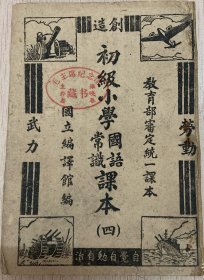 創造
勞動
教育部審定統一課本
初級小學
國語
常識
課本
(四)
國立編譯館編
武力
自覺自動自治
藏书